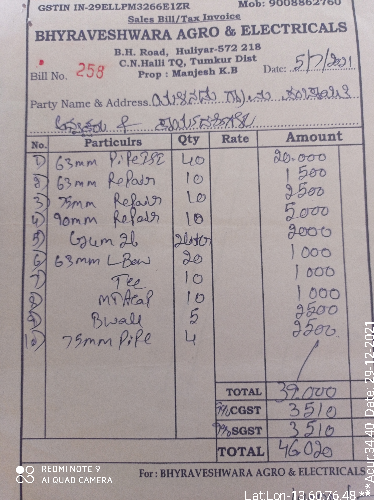 GSTIN IN-29ELLPM3266E1ZR Mob: 9008862760
Sales Bill/Tax Invoice
BHYRAVESHWARA AGRO & ELECTRICALS
B.H. Road, Huliyar-572 218
C.N.Halli TQ, Tumkur Dist
Bill No. 258 Prop : Manjesh K.B Date: 5/7/2021
Party Name & Address
No. Particulrs Qty Rate Amount
1) 63mm Pipe 40 20.000
2) 63mm Repair 10 1500
3) 75mm Repair 10 2500
4) 90mm Repair 10 5.000
5) Gum 2000
6) 63mm L Bow 20 1000
7) Tee 10 1000
8) 10 1000
9) Bwall 5 2500
10) 75mm Pipe 4 2500
TOTAL 39.000
9% CGST 3510
9% SGST 3510
TOTAL 46020
For : BHYRAVESHWARA AGRO & ELECTRICALS
REDMI NOTE 9
AI QUAD CAMERA
LatLon-13.60;76.48
***Acur34.40 Date 29-12-2021